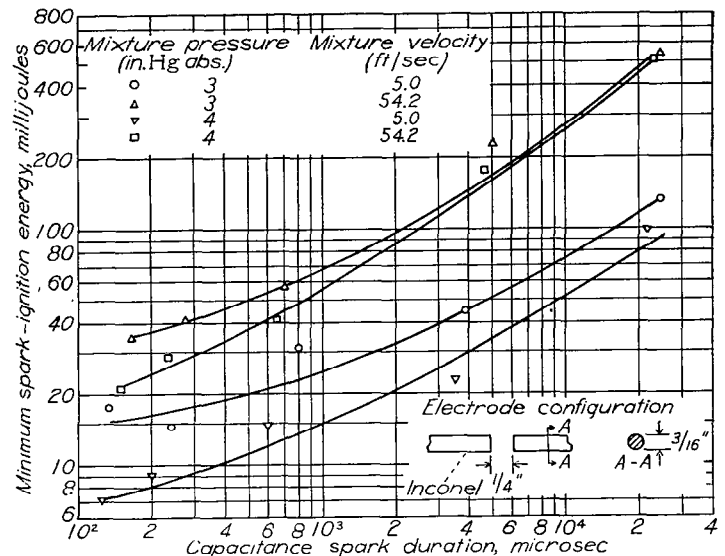 800
600
400
200
100
80
60
40
20
10
8
6
Minimum spark-ignition energy, millijoules
Mixture pressure Mixture velocity
(in.Hg abs.) (ft/sec)
○ 3 5.0
△ 3 54.2
▽ 4 5.0
□ 4 54.2
Electrode configuration
A
A
Inconel 1/4"
A-A
3/16"
10² 2 4 6 8 10³ 2 4 6 8 10⁴ 2 4
Capacitance spark duration, microsec